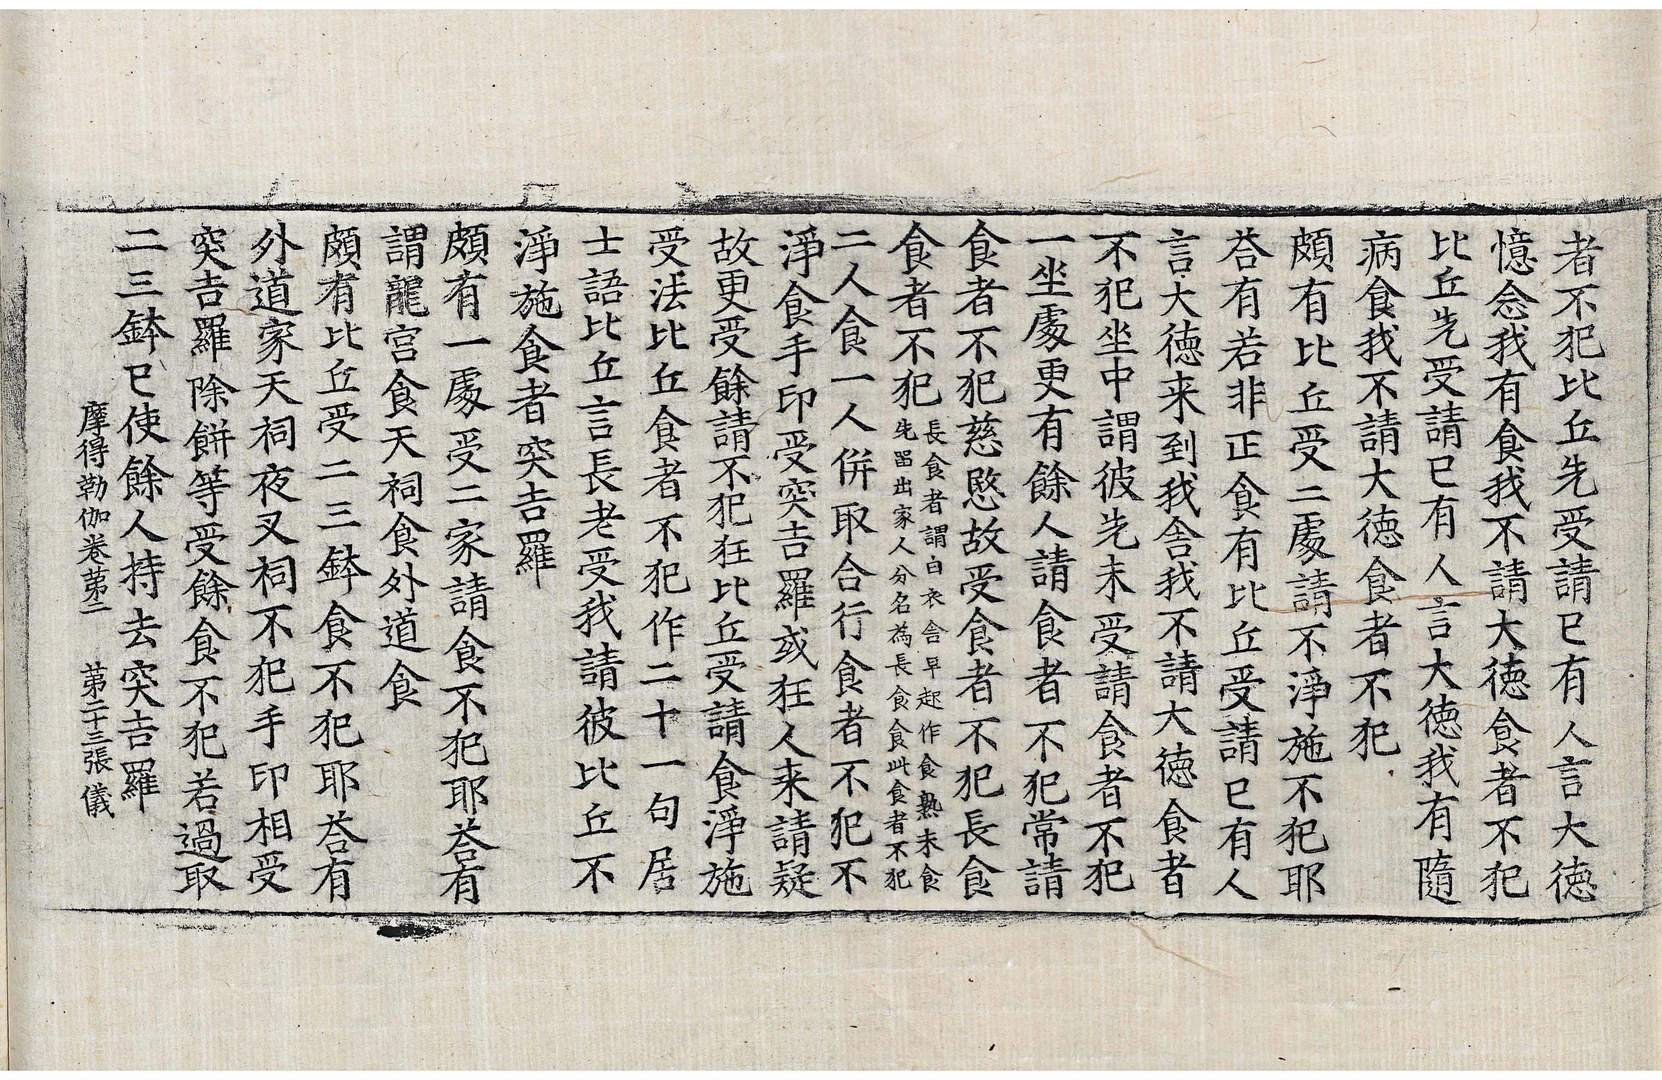 者不犯比丘先受請已有人言大徳
憶念我有食我不請大徳食者不犯
比丘先受請已有人言大徳我有隨
病食我不請大徳食者不犯
頗有比丘受二處請不淨施不犯耶
荅有若非正食有比丘受請已有人
言大徳来到我舎我不請大徳食者
不犯坐中謂彼先未受請食者不犯
一坐處更有餘人請食者不犯常請
食者不犯慈愍故受食者不犯長食
食者不犯長食者謂白衣舎早起作食熟未食
先留出家人分名為長食食此食者不犯
二人食一人併取合行食者不犯不
淨食手印受突吉羅或狂人来請疑
故更受餘請不犯狂比丘受請食淨施
受法比丘食者不犯作二十一句居
士語比丘言長老受我請彼比丘不
淨施食者突吉羅
頗有一處受二家請食不犯耶荅有
謂龍宫食天祠食外道食
頗有比丘受二三鉢食不犯耶荅有
外道家天祠夜叉祠不犯手印相受
突吉羅除餅等受餘食不犯若過取
二三鉢已使餘人持去突吉羅
摩得勒伽卷苐二 苐二十三張 儀